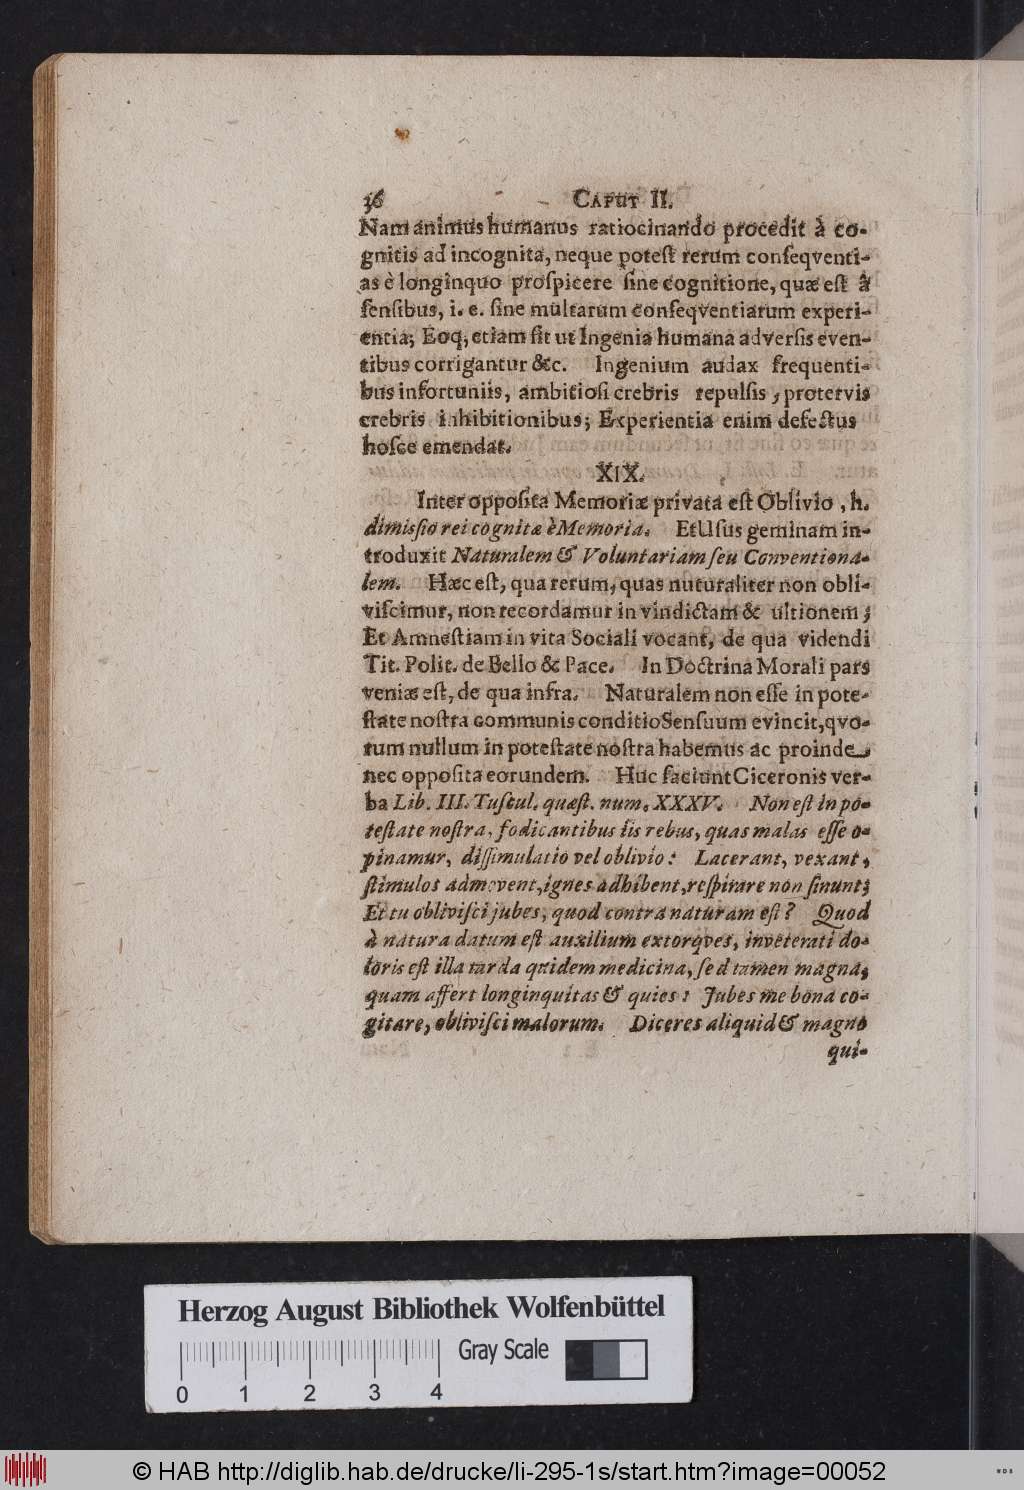 36 CAPUT II.
Nam animus humanus ratiocinando procedit à co-
gnitis ad incognita, neque potest rerum conseqventi-
as è longinquo prospicere sine cognitione, quæ est à
sensibus, i. e. sine multarum conseqventiarum experi-
entia; Eoq; etiam fit ut Ingenia humana adversis even-
tibus corrigantur &c. Ingenium audax frequenti-
bus infortuniis, ambitiosi crebris repulsis, protervis
crebris inhibitionibus; Experientia enim defectus
hosce emendat.
XIX.
Inter opposita Memoriæ privata est Oblivio, h.
dimissio rei cognitæ è Memoria. Et Usus geminam in-
troduxit Naturalem & Voluntariam seu Conventiona-
lem. Hæc est, qua rerum, quas nuturaliter non obli-
viscimur, non recordamur in vindictam & ultionem;
Et Amnestiam in vita Sociali vocant, de qua videndi
Tit. Polit. de Bello & Pace. In Doctrina Morali pars
veniæ est, de qua infra. Naturalem non esse in pote-
state nostra communis conditio Sensuum evincit, qvo-
rum nullum in potestate nostra habemus ac proinde
nec opposita eorundem. Huc faciunt Ciceronis ver-
ba Lib. III. Tuscul. quæst. num. XXXV. Non est in po-
testate nostra, fodicantibus iis rebus, quas malas esse o-
pinamur, dissimulatio vel oblivio: Lacerant, vexant,
stimulos admovent, ignes adhibent, respirare non sinunt;
Et tu oblivisci jubes, quod contra naturam est? Quod
à natura datum est auxilium extorqves, inveterati do-
loris est illa tarda quidem medicina, sed tamen magna,
quam affert longinquitas & quies: Jubes me bona co-
gitare, oblivisci malorum. Diceres aliquid & magno
qui-
Herzog August Bibliothek Wolfenbüttel
Gray Scale
0 1 2 3 4
© HAB http://diglib.hab.de/drucke/li-295-1s/start.htm?image=00052